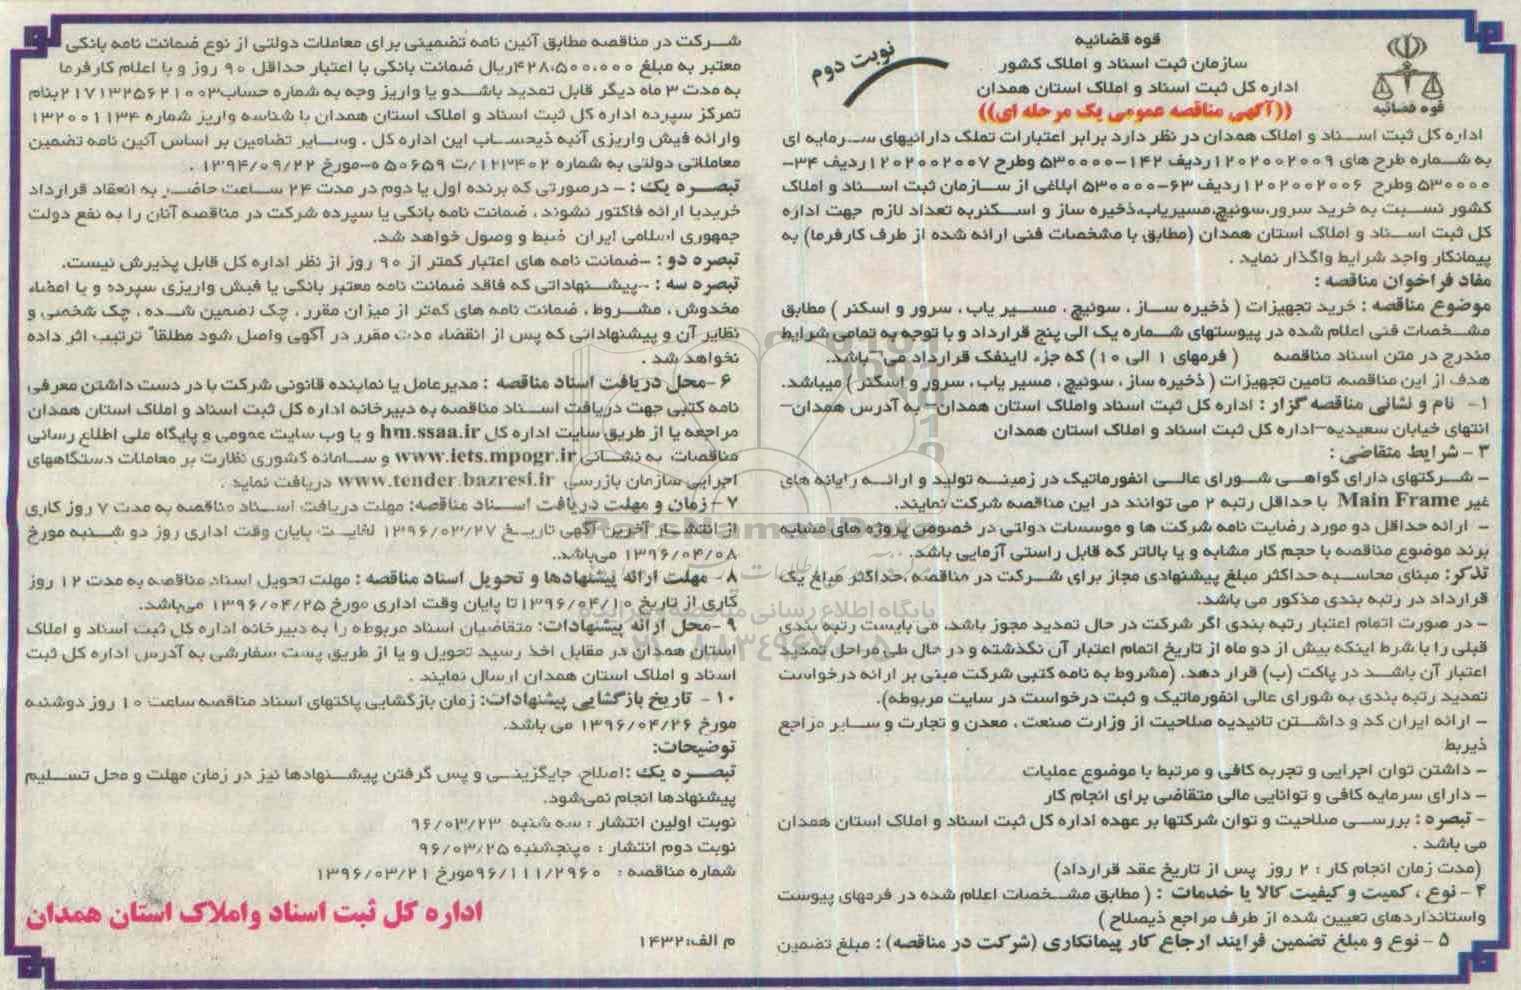 قوه قضائیه
سازمان ثبت اسناد و املاک کشور
اداره کل ثبت اسناد و املاک استان همدان
((آگهی مناقصه عمومی یک مرحله ای))
نوبت دوم
قوه قضائیه
اداره کل ثبت اسناد و املاک همدان در نظر دارد برابر اعتبارات تملک دارائیهای سرمایه ای
به شماره طرح های ۱۲۰۲۰۰۲۰۰۹ردیف ۱۴۲-۵۳۰۰۰۰ وطرح ۱۲۰۲۰۰۲۰۰۷ردیف ۳۴-
۵۳۰۰۰۰ وطرح ۱۲۰۲۰۰۲۰۰۶ردیف ۶۳-۵۳۰۰۰۰ ابلاغی از سازمان ثبت اسناد و املاک
کشور نسبت به خرید سرور،سوئیچ،مسیریاب،ذخیره ساز و اسکنربه تعداد لازم جهت اداره
کل ثبت اسناد و املاک استان همدان (مطابق با مشخصات فنی ارائه شده از طرف کارفرما) به
پیمانکار واجد شرایط واگذار نماید .
مفاد فراخوان مناقصه :
موضوع مناقصه : خرید تجهیزات ( ذخیره ساز ، سوئیچ ، مسیر یاب ، سرور و اسکنر ) مطابق
مشخصات فنی اعلام شده در پیوستهای شماره یک الی پنج قرارداد و با توجه به تمامی شرایط
مندرج در متن اسناد مناقصه ( فرمهای ۱ الی ۱۰) که جزء لاینفک قرارداد می باشد.
هدف از این مناقصه، تامین تجهیزات ( ذخیره ساز ، سوئیچ ، مسیر یاب ، سرور و اسکنر ) میباشد.
۱- نام و نشانی مناقصه گزار : اداره کل ثبت اسناد واملاک استان همدان- به آدرس همدان-
انتهای خیابان سعیدیه-اداره کل ثبت اسناد و املاک استان همدان
۳ - شرایط متقاضی :
- شرکتهای دارای گواهی شورای عالی انفورماتیک در زمینه تولید و ارائه رایانه های
غیر Main Frame با حداقل رتبه ۲ می توانند در این مناقصه شرکت نمایند.
- ارائه حداقل دو مورد رضایت نامه شرکت ها و موسسات دولتی در خصوص پروژه های مشابه
برند موضوع مناقصه با حجم کار مشابه و یا بالاتر که قابل راستی آزمایی باشد.
تذکر: مبنای محاسبه حداکثر مبلغ پیشنهادی مجاز برای شرکت در مناقصه ،حداکثر مبلغ یک
قرارداد در رتبه بندی مذکور می باشد.
- در صورت اتمام اعتبار رتبه بندی اگر شرکت در حال تمدید مجوز باشد، می بایست رتبه بندی
قبلی را با شرط اینکه بیش از دو ماه از تاریخ اتمام اعتبار آن نگذشته و در حال طی مراحل تمدید
اعتبار آن باشد در پاکت (ب) قرار دهد. (مشروط به نامه کتبی شرکت مبنی بر ارائه درخواست
تمدید رتبه بندی به شورای عالی انفورماتیک و ثبت درخواست در سایت مربوطه).
- ارائه ایران کد و داشتن تائیدیه صلاحیت از وزارت صنعت ، معدن و تجارت و سایر مراجع
ذیربط
- داشتن توان اجرایی و تجربه کافی و مرتبط با موضوع عملیات
- دارای سرمایه کافی و توانایی مالی متقاضی برای انجام کار
- تبصره : بررسی صلاحیت و توان شرکتها بر عهده اداره کل ثبت اسناد و املاک استان همدان
می باشد .
(مدت زمان انجام کار : ۲ روز پس از تاریخ عقد قرارداد)
۴ - نوع ، کمیت و کیفیت کالا یا خدمات : ( مطابق مشخصات اعلام شده در فرمهای پیوست
واستانداردهای تعیین شده از طرف مراجع ذیصلاح )
۵ - نوع و مبلغ تضمین فرایند ارجاع کار پیمانکاری (شرکت در مناقصه) : مبلغ تضمین
شرکت در مناقصه مطابق آئین نامه تضمینی برای معاملات دولتی از نوع ضمانت نامه بانکی
معتبر به مبلغ ۴۲۸،۵۰۰،۰۰۰ریال ضمانت بانکی با اعتبار حداقل ۹۰ روز و با اعلام کارفرما
به مدت ۳ ماه دیگر قابل تمدید باشدو یا واریز وجه به شماره حساب۲۱۷۱۳۲۵۶۲۱۰۰۳بنام
تمرکز سپرده اداره کل ثبت اسناد و املاک استان همدان با شناسه واریز شماره ۱۳۲۰۰۱۱۳۴
وارائه فیش واریزی آنبه ذیحساب این اداره کل . وسایر تضامین بر اساس آئین نامه تضمین
معاملاتی دولتی به شماره ۱۲۳۴۰۲/ت ۵۰۶۵۹ه-مورخ ۱۳۹۴/۰۹/۲۲ .
تبصره یک : - درصورتی که برنده اول یا دوم در مدت ۲۴ ساعت حاضر به انعقاد قرارداد
خریدیا ارائه فاکتور نشوند ، ضمانت نامه بانکی یا سپرده شرکت در مناقصه آنان را به نفع دولت
جمهوری اسلامی ایران ضبط و وصول خواهد شد.
تبصره دو : -ضمانت نامه های اعتبار کمتر از ۹۰ روز از نظر اداره کل قابل پذیرش نیست.
تبصره سه : -پیشنهاداتی که فاقد ضمانت نامه معتبر بانکی یا فیش واریزی سپرده و یا امضاء
مخدوش ، مشروط ، ضمانت نامه های کمتر از میزان مقرر ، چک تضمین شده ، چک شخصی و
نظایر آن و پیشنهاداتی که پس از انقضاء مدت مقرر در آگهی واصل شود مطلقا" ترتیب اثر داده
نخواهد شد .
۶ -محل دریافت اسناد مناقصه : مدیرعامل یا نماینده قانونی شرکت با در دست داشتن معرفی
نامه کتبی جهت دریافت اسناد مناقصه به دبیرخانه اداره کل ثبت اسناد و املاک استان همدان
مراجعه یا از طریق سایت اداره کل hm.ssaa.ir و یا وب سایت عمومی و پایگاه ملی اطلاع رسانی
مناقصات به نشانی www.iets.mpogr.ir و سامانه کشوری نظارت بر معاملات دستگاههای
اجرایی سازمان بازرسی www.tender.bazresi.ir دریافت نماید .
۷ - زمان و مهلت دریافت اسناد مناقصه: مهلت دریافت اسناد مناقصه به مدت ۷ روز کاری
از انتشار آخرین آگهی تاریخ ۱۳۹۶/۰۳/۲۷ لغایت پایان وقت اداری روز دو شنبه مورخ
۱۳۹۶/۰۴/۰۸ می‌باشد.
۸ - مهلت ارائه پیشنهادها و تحویل اسناد مناقصه : مهلت تحویل اسناد مناقصه به مدت ۱۲ روز
کاری از تاریخ ۱۳۹۶/۰۴/۱۰تا پایان وقت اداری مورخ ۱۳۹۶/۰۴/۲۵ می‌باشد.
۹ -محل ارائه پیشنهادات: متقاضیان اسناد مربوطه را به دبیرخانه اداره کل ثبت اسناد و املاک
استان همدان در مقابل اخذ رسید تحویل و یا از طریق پست سفارشی به آدرس اداره کل ثبت
اسناد و املاک استان همدان ارسال نمایند .
۱۰ - تاریخ بازگشایی پیشنهادات: زمان بازگشایی پاکتهای اسناد مناقصه ساعت ۱۰ روز دوشنبه
مورخ ۱۳۹۶/۰۴/۲۶ می باشد.
توضیحات:
تبصره یک :اصلاح، جایگزینی و پس گرفتن پیشنهادها نیز در زمان مهلت و محل تسلیم
پیشنهادها انجام نمی‌شود.
نوبت اولین انتشار : سه شنبه ۹۶/۰۳/۲۳
نوبت دوم انتشار : پنجشنبه ۹۶/۰۳/۲۵
شماره مناقصه : ۹۶/۱۱۱/۲۹۶۰مورخ ۱۳۹۶/۰۳/۲۱
اداره کل ثبت اسناد واملاک استان همدان
م الف:۱۴۳۲
پایگاه اطلاع رسانی